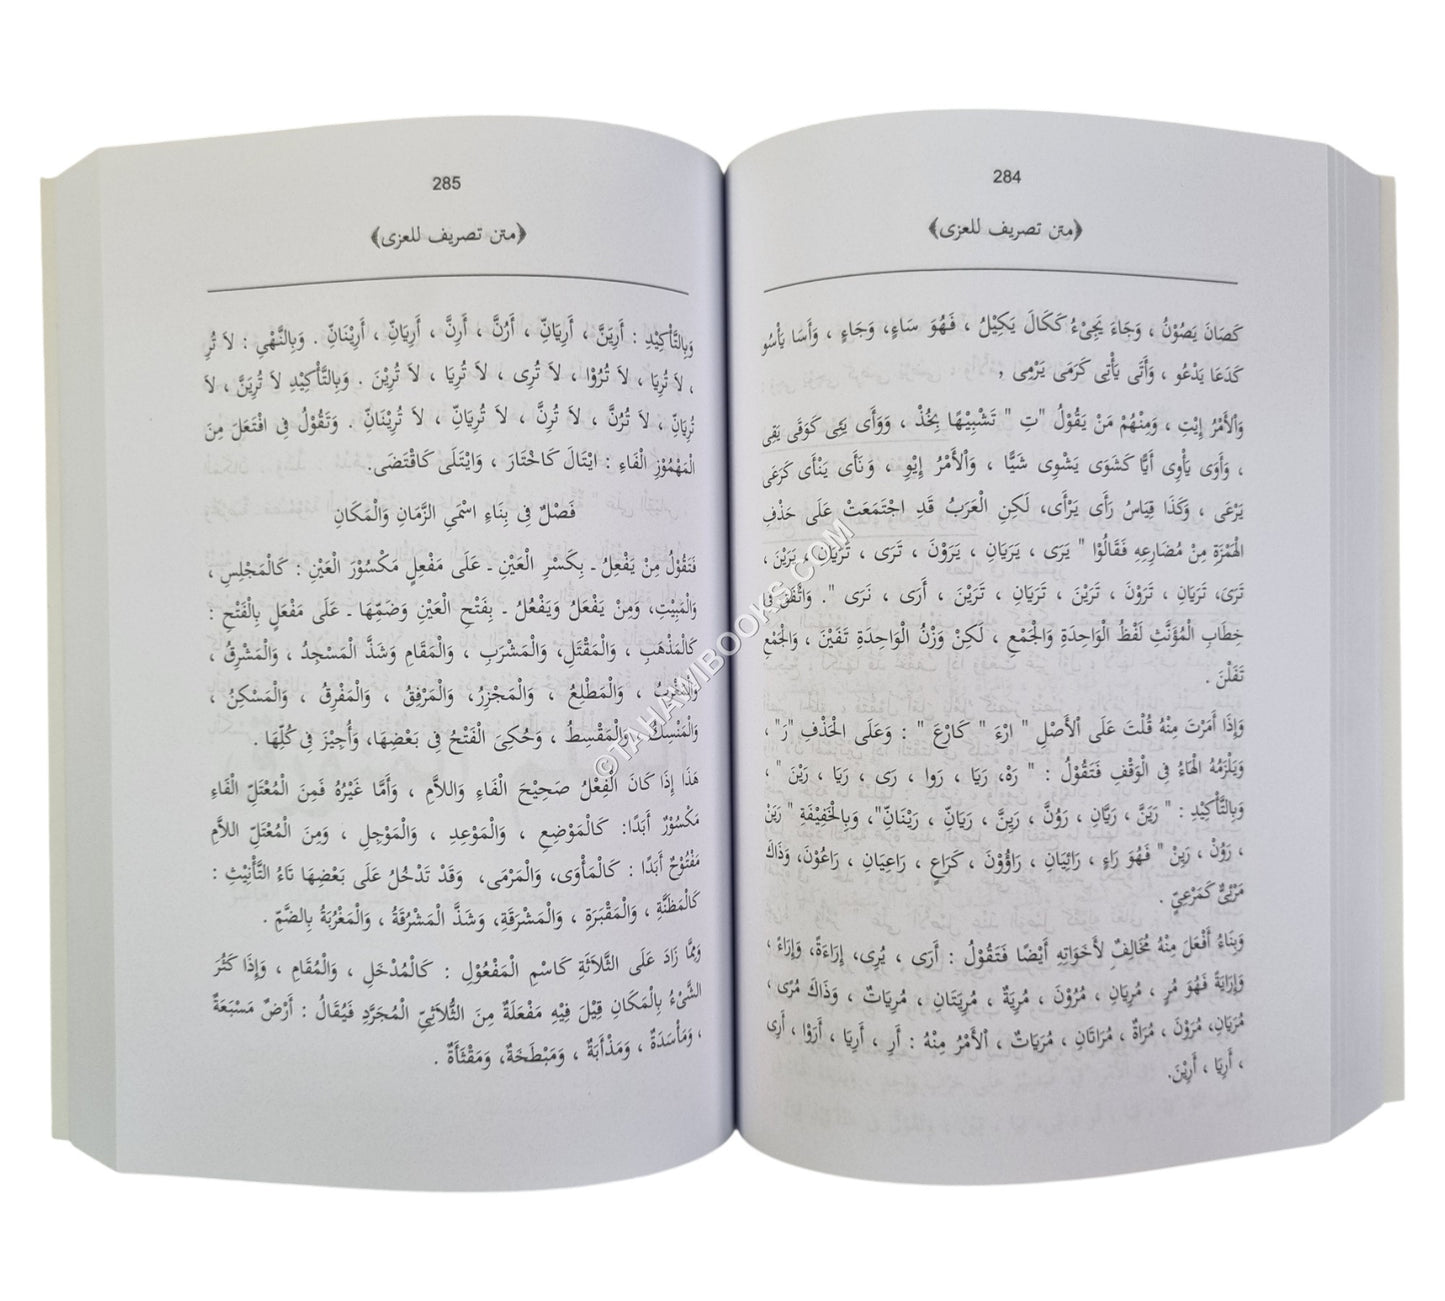 284
﴿متن تصريف للعزى﴾
كَصَانَ يَصُوْنُ ، وَجَاءَ يَجِىْءُ كَكَالَ يَكِيْلُ ، فَهُوَ سَاءٍ، وَجَاءٍ ، وَأَسَا يَأْسُو
كَدَعَا يَدْعُو ، وَأَتَى يَأْتِى كَرَمَى يَرْمِى ,
وَالْأَمْرُ إِيْتِ ، وَمِنْهُمْ مَنْ يَقُوْلُ "تِ " تَشْبِيْهًا بِخُذْ ، وَوَأَى يَئِى كَوَقَى يَقِى
، وَأَوَى يَأْوِى أَيًّا كَشَوَى يَشْوِى شَيًّا ، وَالْأَمْرُ إِيْوِ ، وَنَأَى يَنْأَى كَرَعَى
يَرْعَى ، وَكَذَا قِيَاسُ رَأَى يَرْأَى، لَكِنِ الْعَرَبُ قَدِ اجْتَمَعَتْ عَلَى حَذْفِ
الْهَمْزَةِ مِنْ مُضَارِعِهِ فَقَالُوْا " يَرَى ، يَرَيَانِ ، يَرَوْنَ ، تَرَى ، تَرَيَانِ ، يَرَيْنَ ،
تَرَى، تَرَيَانِ ، تَرَوْنَ ، تَرَيْنَ ، تَرَيَانِ ، تَرَيْنَ ، أَرَى ، نَرَى ". وَاتَّفَقَ فِى
خِطَابِ الْمُؤَنَّثِ لَفْظُ الْوَاحِدَةِ وَالْجَمْعِ ، لَكِنْ وَزْنُ الْوَاحِدَةِ تَفَيْنَ ، وَالْجَمْعِ
تَفَلْنَ .
وَإِذَا أَمَرْتَ مِنْهُ قُلْتَ عَلَى الْأَصْلِ " ارْءَ " كَارْعَ " : وَعَلَى الْحَذْفِ "رَ" ،
وَيَلْزَمُهُ الْهَاءُ فِى الْوَقْفِ فَتَقُوْلُ : " رَهْ، رَيَا ، رَوا ، رَى ، رَيَا ، رَيْنَ " ،
وَبِالتَّأْكِيْدِ : " رَيَنَّ ، رَيَّانِ ، رَوُنَّ ، رَيِنَّ ، رَيَانِّ ، رَيْنَانِّ"، وَبِالْخَفِيْفَةِ " رَيَنْ
، رَوُنْ ، رَيِنْ " فَهُوَ رَاءٍ ، رَائِيَانِ ، رَاؤُوْنَ ، كَرَاعٍ ، رَاعِيَانِ ، رَاعُوْنَ، وَذَاكَ
مَرْئِىٌّ كَمَرْعِيٍّ .
وَبِنَاءُ أَفْعَلَ مِنْهُ مُخَالِفٌ لِأَخَوَاتِهِ أَيْضًا فَتَقُوْلُ : أَرَى ، يُرِى، إِرَاءَةً، وَإِرَاءً ،
وَإِرَايَةً فَهُوَ مُرٍ ، مُرِيَانِ ، مُرُوْنَ ، مُرِيَةٌ ، مُرِيَتَانِ ، مُرِيَاتٌ ، وَذَاكَ مُرًى ،
مُرَيَانِ، مُرَوْنَ ، مُرَاةٌ ، مُرَاتَانِ ، مُرَيَاتٌ ، الْأَمْرُ مِنْهُ : أَرِ ، أَرِيَا ، أَرَوْا ، أَرِى
، أَرِيَا ، أَرِيْنَ.
285
﴿متن تصريف للعزى﴾
وَبِالتَّأْكِيْدِ : أَرِيَنَّ ، أَرِيَانِّ ، أَرُنَّ ، أَرِنَّ ، أَرِيَانِّ ، أَرِيْنَانِّ . وَبِالنَّهْيِ : لَا تُرِ
، لَا تُرِيَا ، لَا تُرُوْا ، لَا تُرِى ، لَا تُرِيَا ، لَا تُرِيْنَ . وَبِالتَّأْكِيْدِ لَا تُرِيَنَّ ، لَا
تُرِيَانِّ ، لَا تُرُنَّ ، لَا تُرِنَّ ، لَا تُرِيَانِّ ، لَا تُرِيْنَانِّ . وَتَقُوْلُ فِى افْتَعَلَ مِنَ
الْمَهْمُوْزِ الْفَاءِ : ايْتَالَ كَاخْتَارَ ، وَايْتَلَى كَاقْتَضَى.
فَصْلٌ فِى بِنَاءِ اسْمَيِ الزَّمَانِ وَالْمَكَانِ
فَتَقُوْلُ مِنْ يَفْعِلُ ـ بِكَسْرِ الْعَيْنِ ـ عَلَى مَفْعِلٍ مَكْسُوْرَ الْعَيْنِ : كَالْمَجْلِسِ ،
وَالْمَبِيْتِ، وَمِنْ يَفْعَلُ وَيَفْعُلُ ـ بِفَتْحِ الْعَيْنِ وَضَمِّهَا ـ عَلَى مَفْعَلٍ بِالْفَتْحِ :
كَالْمَذْهَبِ ، وَالْمَقْتَلِ، وَالْمَشْرَبِ ، وَالْمَقَامِ وَشَذَّ الْمَسْجِدُ ، وَالْمَشْرِقُ ،
وَالْمَغْرِبُ ، وَالْمَطْلِعُ ، وَالْمَجْزِرُ، وَالْمَرْفِقُ ، وَالْمَفْرِقُ ، وَالْمَسْكِنُ ،
وَالْمَنْسِكُ ، وَالْمَقْسِطُ ، وَحُكِىَ الْفَتْحُ فِى بَعْضِهَا، وَأُجِيْزَ فِى كُلِّهَا .
هَذَا إِذَا كَانَ الْفِعْلُ صَحِيْحَ الْفَاءِ وَاللَّامِ ، وَأَمَّا غَيْرُهُ فَمِنَ الْمُعْتَلِّ الْفَاءِ
مَكْسُوْرٌ أَبَدًا: كَالْمَوْضِعِ ، وَالْمَوْعِدِ ، وَالْمَوْجِلِ ، وَمِنَ الْمُعْتَلِّ اللَّامِ
مَفْتُوْحٌ أَبَدًا : كَالْمَأْوَى، وَالْمَرْمَى، وَقَدْ تَدْخُلُ عَلَى بَعْضِهَا تَاءُ التَّأْنِيْثِ :
كَالْمَظَنَّةِ ، وَالْمَقْبَرَةِ ، وَالْمَشْرَقَةِ، وَشَذَّ الْمَشْرُقَةُ ، وَالْمَغْرُبَةُ بِالضَّمِّ .
وَمِمَّا زَادَ عَلَى الثَّلَاثَةِ كَاسْمِ الْمَفْعُوْلِ : كَالْمُدْخَلِ ، وَالْمُقَامِ ، وَإِذَا كَثُرَ
الشَّىْءُ بِالْمَكَانِ قِيْلَ فِيْهِ مَفْعَلَةٌ مِنَ الثُّلَاثِيِّ الْمُجَرَّدِ فَيُقَالُ : أَرْضٌ مَسْبَعَةٌ
، وَمَأْسَدَةٌ ، وَمَذْأَبَةٌ ، وَمَبْطَخَةٌ، وَمَقْثَأَةٌ .
©TAHAMIBOOKS.COM